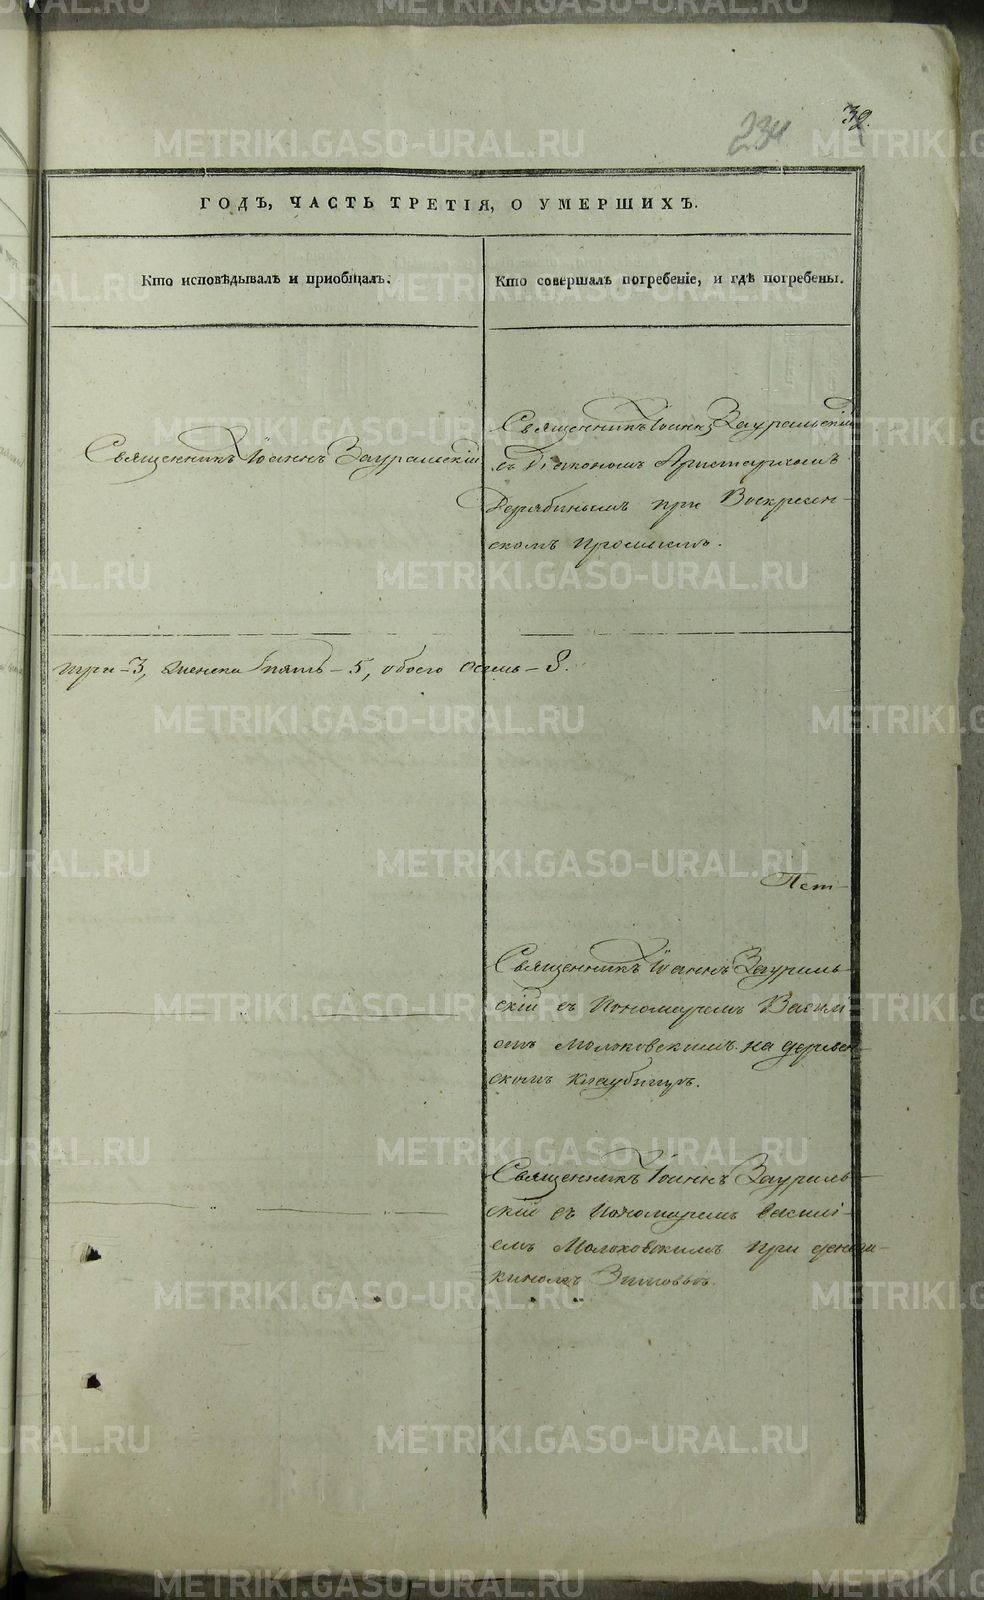 234
32.
ГОДЪ, ЧАСТЬ ТРЕТІЯ, О УМЕРШИХЪ.
Кто исповѣдывалъ и пріобщалъ.
Кто совершалъ погребеніе, и гдѣ погребены.
Священникъ Іоаннъ Зауральскій
Священникъ Іоаннъ Зауральскій
съ Діакономъ Аристархомъ
Дерябинымъ при Воскресен-
скомъ промыслѣ.
три - 3, женска пять - 5, обоего осемь - 8.
Священникъ Іоаннъ Заураль-
скій съ Пономаремъ Васили
емъ Молоковскимъ на деревен-
скомъ кладбищѣ.
Священникъ Іоаннъ Заураль-
скій съ Пономаремъ Василі-
емъ Молоковскимъ при
Зимовьѣ.
METRIKI.GASO-URAL.RU